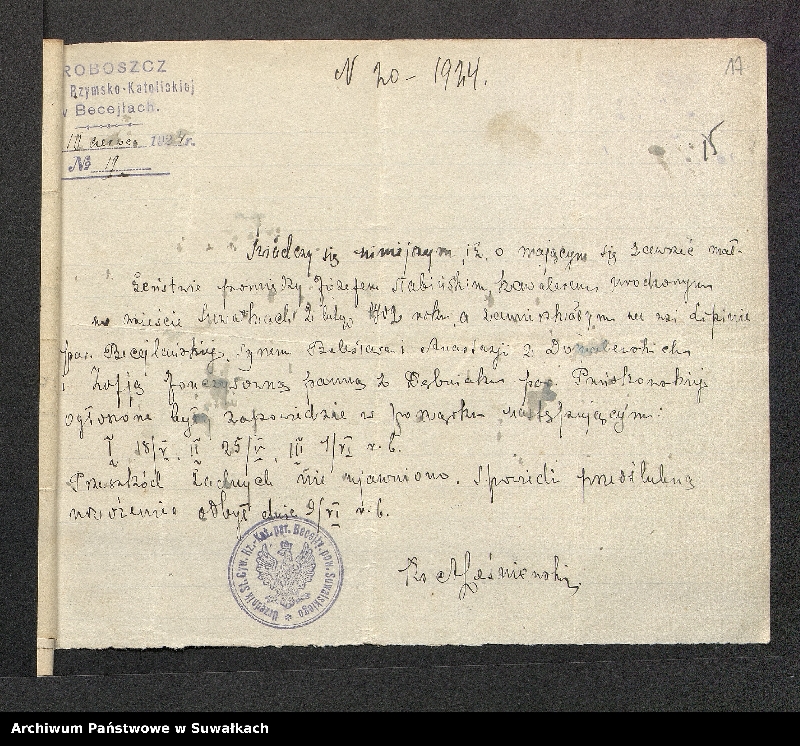 ROBOSZCZ
Rzymsko-Katolickiej
w Becejłach.
10 czerwca 1924 r.
№ 11
N 20 - 1924.
17
15
Świadczy się niniejszym, iż o mającym się zawrzeć mał-
żeństwie pomiędzy Józefem kawalerem, urodzonym
w mieście Suwałkach 2 lutego 1902 roku, a zamieszkałym we wsi Lipinie
par. Becejłańskiej, synem Bolesława i Anastazji z
i Zofją panną z Dębniaku par. Puńskowskiej
ogłoszone były zapowiedzie w porządku następującym:
I 18/V, II 25/V, III 1/VI r. b.
Przeszkód żadnych nie ujawniono. Spowiedź przedślubną
narzeczeni odbył dnia 9/VI r. b.
Ks.
Urzędnik St. Cyw. Rz.-Kat. par. Becejły, pow. Suwalskiego
Archiwum Państwowe w Suwałkach